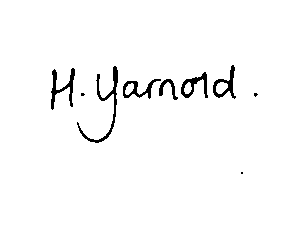 H. Yarnold.